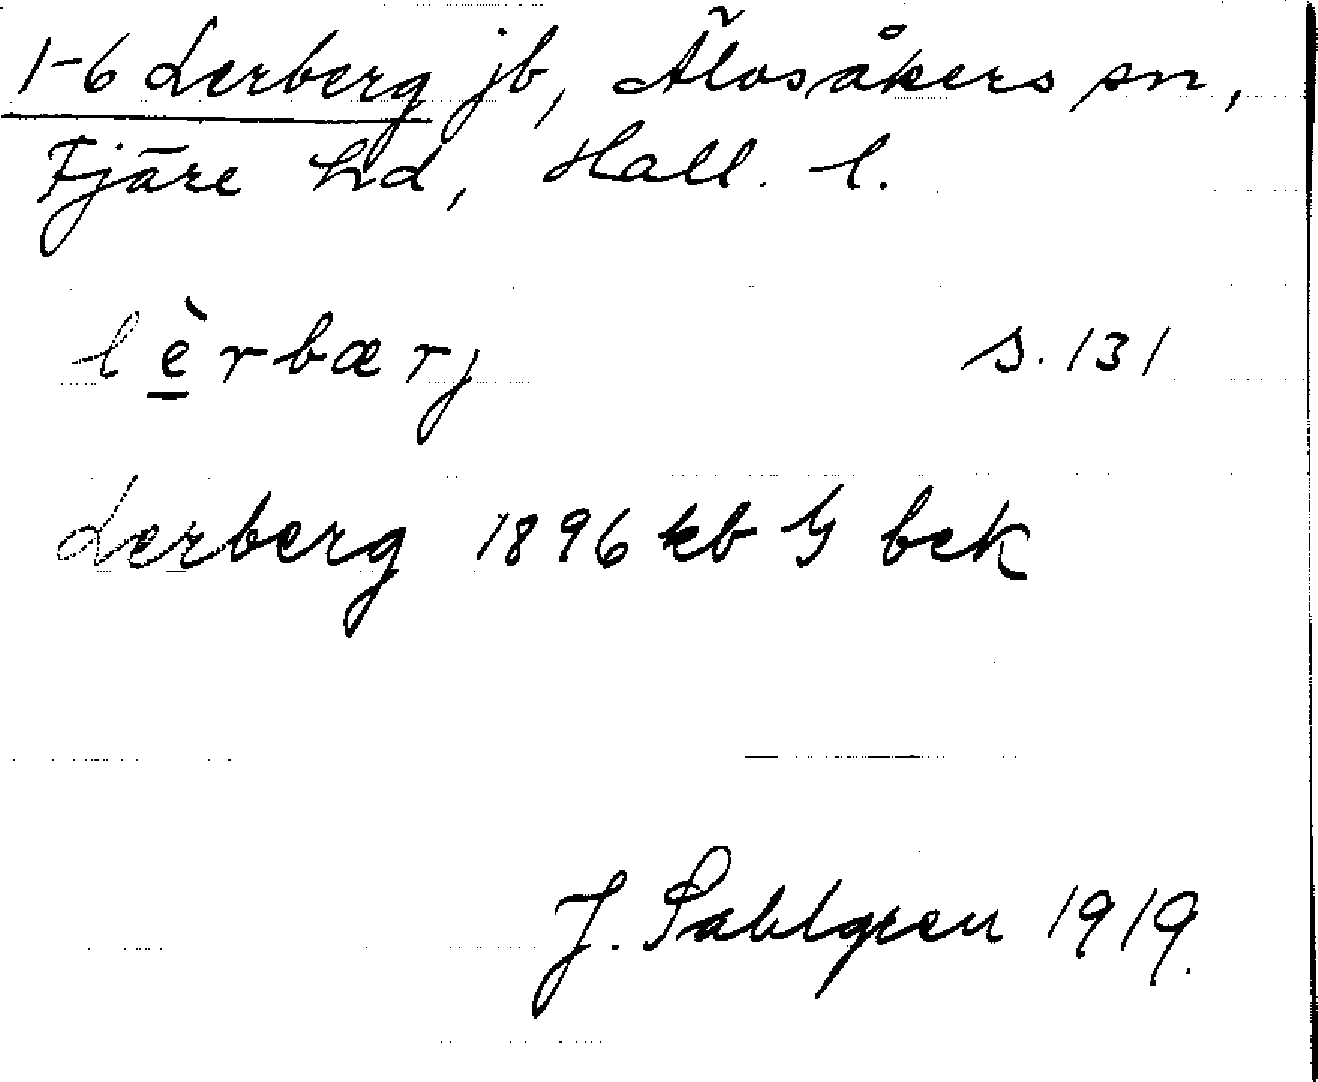 1-6 Lerberg jb, Älvsåkers sn,
Fjäre hd, Hall. l.
lèrbærj s. 131
Lerberg 1896 kb G bek
J. Sahlgren 1919.